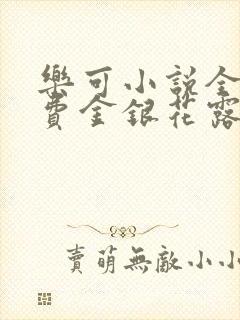 樂可小說全
費金銀花露
賣萌無敵小小